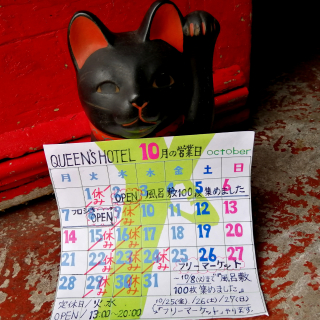 QUEEN'S HOTEL 10月の営業日 october
月 火 水 木 金 土 日
1 休み 2 3 4 5 6
OPEN 風呂敷100枚集めました
7 8 9 10 11 12 13
OPEN
14 15 休み 16 休み 17 18 19 20
21 22 休み 23 休み 24 休み 25 26 27
フリーマーケット
28 29 休み 30 休み 31
100枚集めました」
定休日/火水
OPEN/13:00~20:00
10/25(金)/26(土)/27(日)
「フリーマーケット」やります